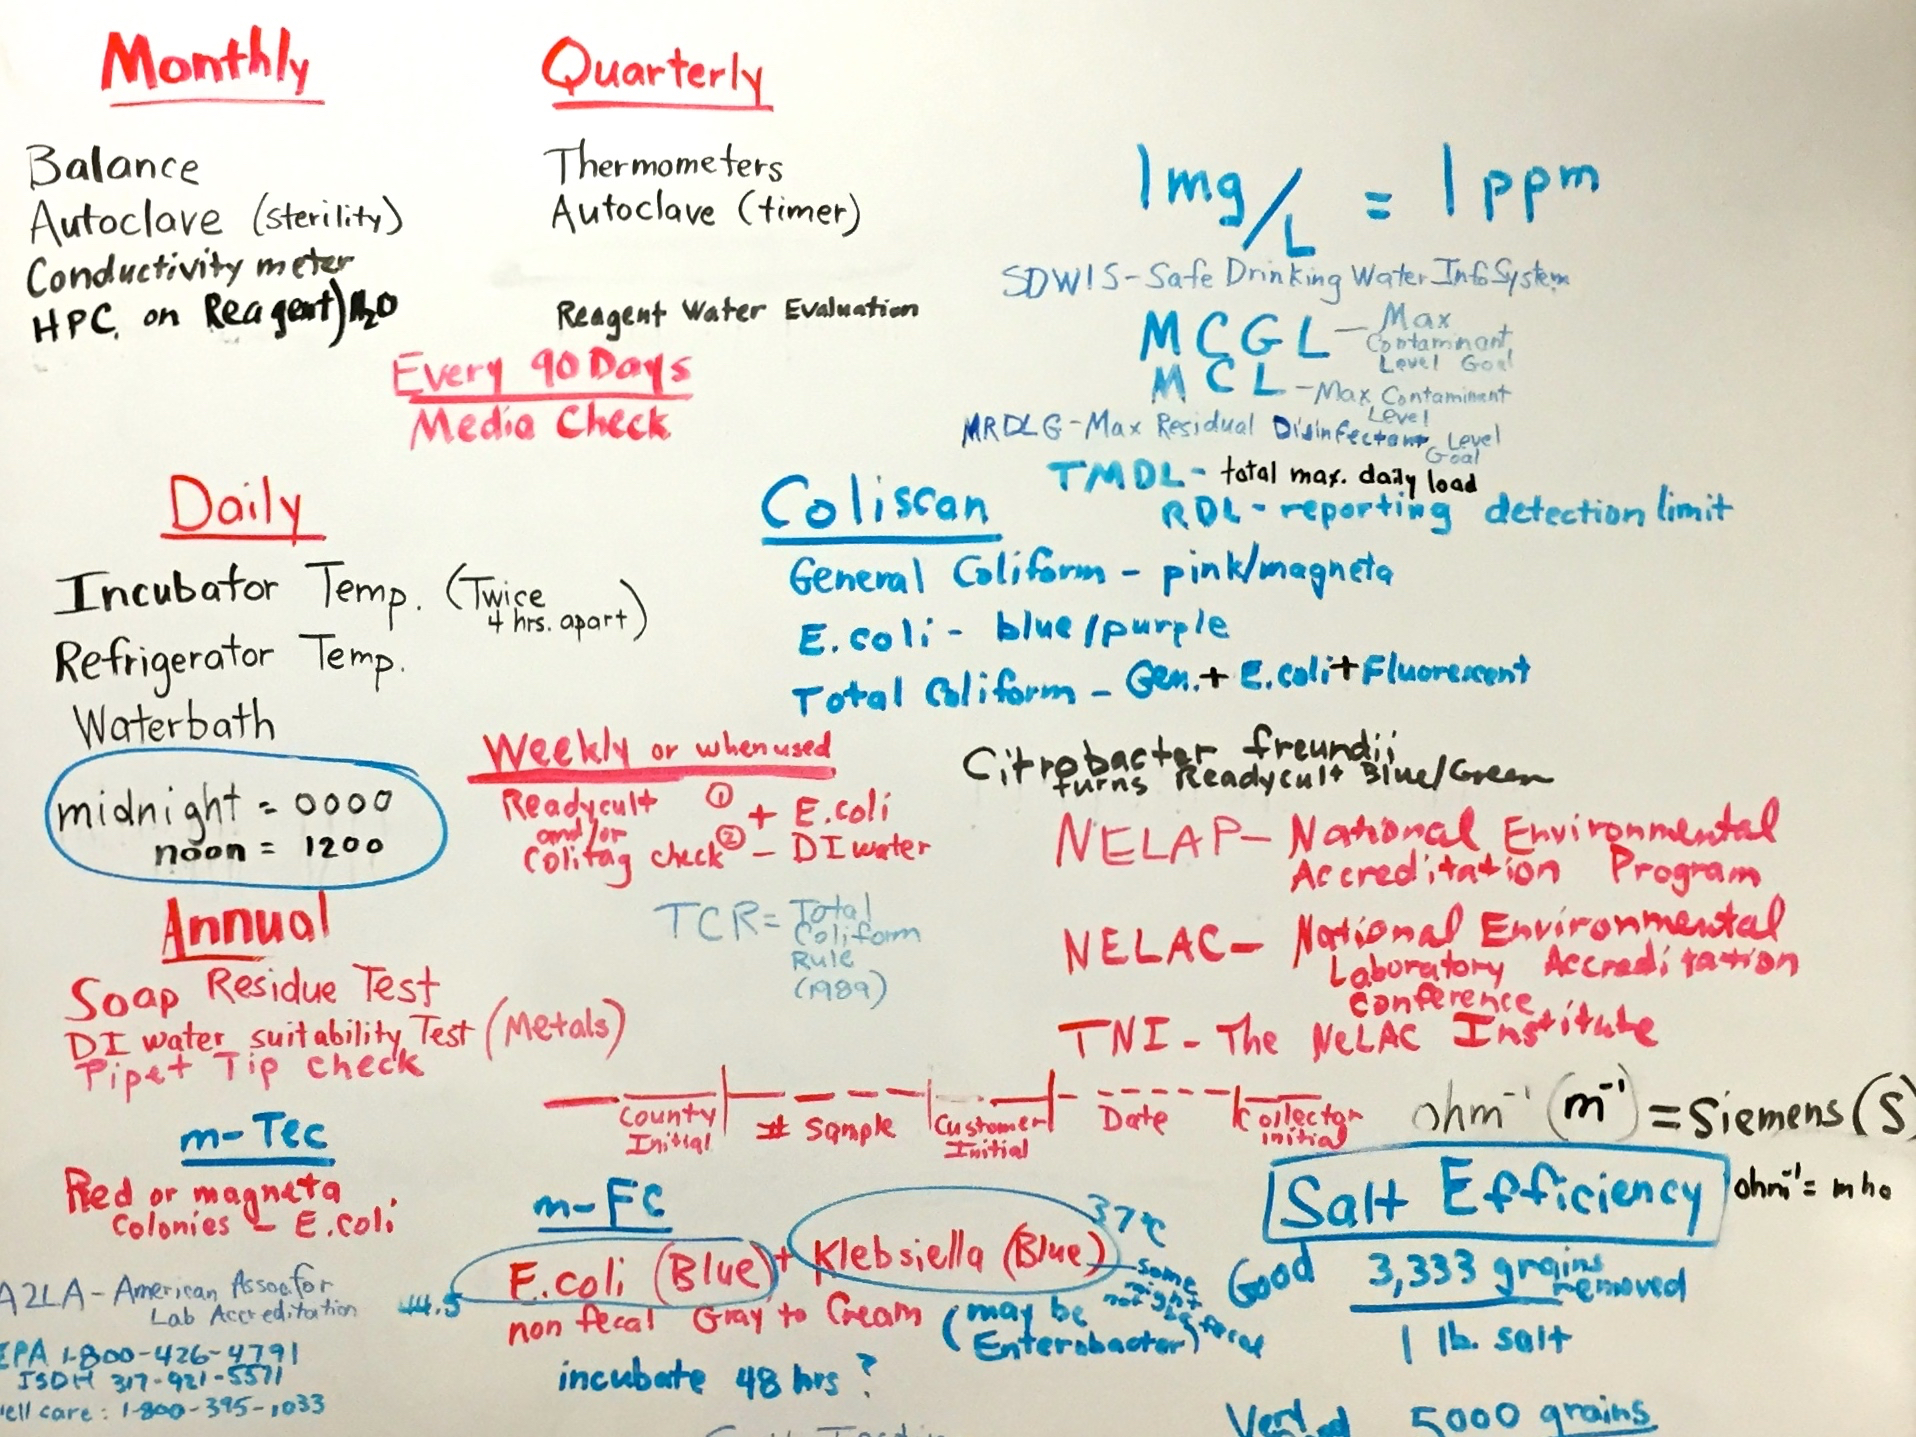 Monthly
Balance
Autoclave (sterility)
Conductivity meter
HPC on Reagent) H2O
Quarterly
Thermometers
Autoclave (timer)
Reagent Water Evaluation
Every 90 Days
Media Check
1 mg/L = 1 ppm
SDWIS - Safe Drinking Water Info System
MCGL - Max
Contaminant
Level Goal
MCL - Max Contaminent
Level
MRDLG - Max Residual Disinfectant Level
Goal
TMDL - total max. daily load
RDL - reporting detection limit
Daily
Incubator Temp. (Twice
4 hrs. apart)
Refrigerator Temp.
Waterbath
midnight = 0000
noon = 1200
Coliscan
General Coliform - pink/magneta
E.coli - blue/purple
Total Coliform - Gen. + E.coli + Fluorescent
Weekly or when used
Readycult ① + E.coli
and/or
Colitag check ② - DI water
Citrobacter freundii
turns Readycult Blue/Green
TCR = Total
Coliform
Rule
(1989)
NELAP - National Environmental
Accreditation Program
NELAC - National Environmental
Laboratory Accreditation
Conference
TNI - The NeLAC Institute
Annual
Soap Residue Test
DI water suitability Test (Metals)
Pipet Tip Check
County
Initial
# Sample
Customer
Initial
Date
Collector
initial
ohm⁻¹ (m⁻¹) = Siemens (S
ohm⁻¹ = mho
m-Tec
Red or magneta
colonies - E.coli
m-FC
E.coli (Blue) + Klebsiella (Blue)
37°C
some
might
not be
fecal
44.5
non fecal Gray to Cream (may be
Enterobacter)
incubate 48 hrs ?
Salt Efficiency
Good 3,333 grains
removed
1 lb. salt
Very 5000 grains
A2LA - American Assoc for
Lab Accreditation
EPA 1-800-426-4791
ISDH 317-921-5571
ell care: 1-800-395-1033